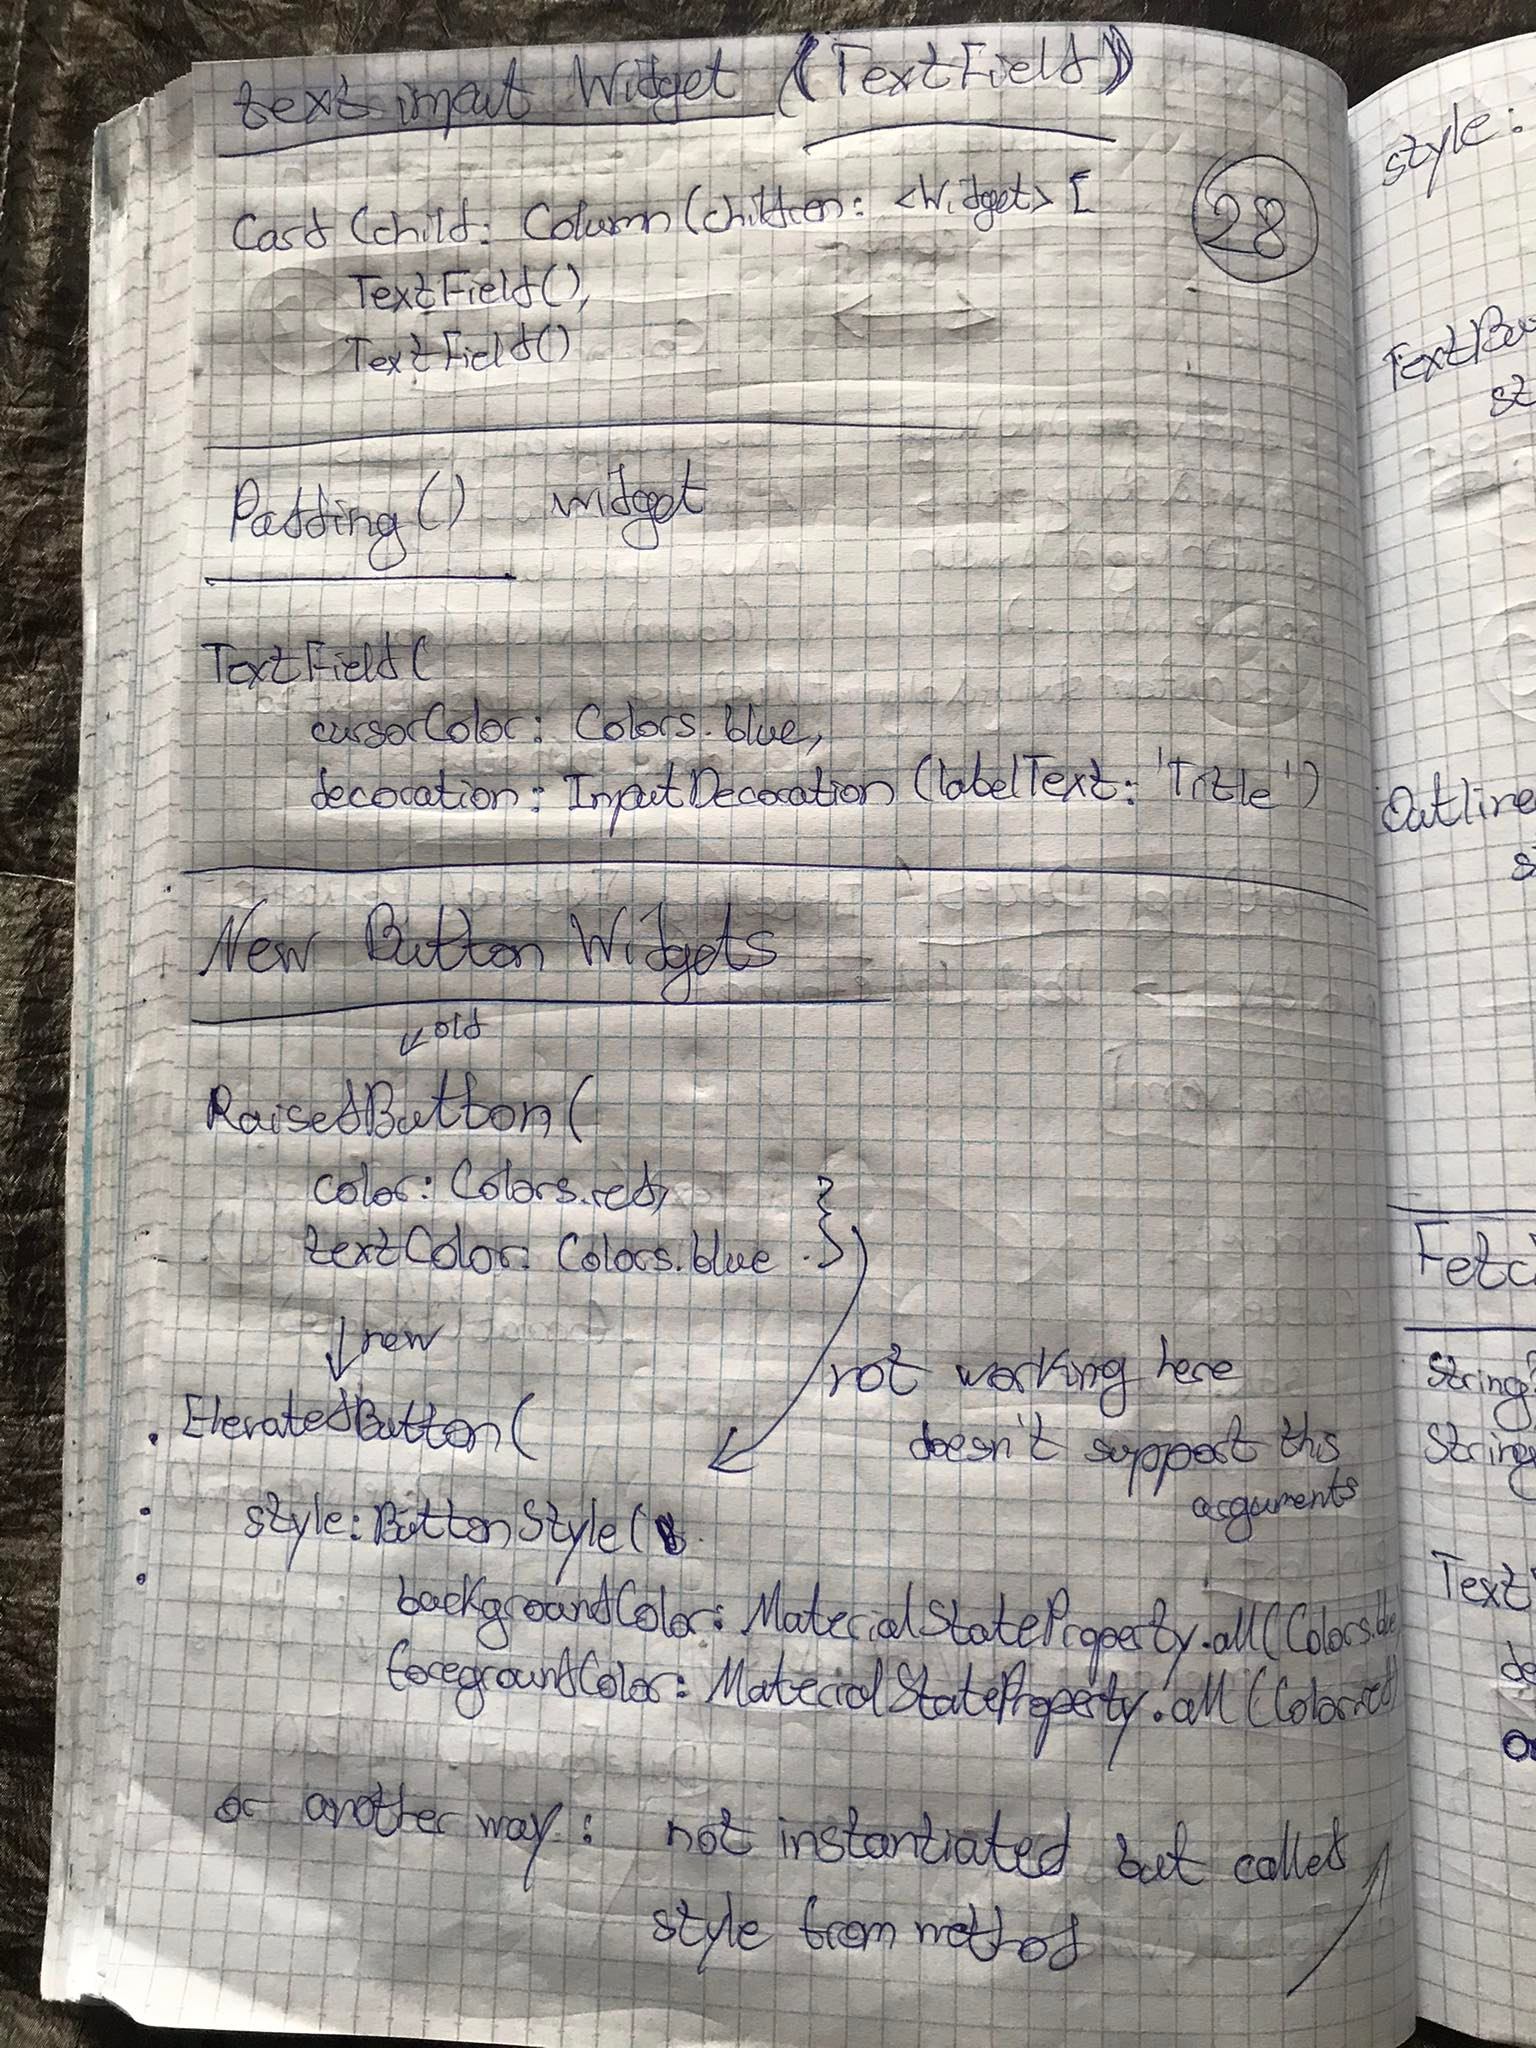 text input Widget (TextField)
28
Card (child: Column(children: <Widget> [
TextField(),
TextField()
Padding() widget
TextField(
cursorColor: Colors.blue,
decoration: InputDecoration (labelText: 'Title')
New Button Widgets
old
RaisedButton(
color: Colors.red,
textColor: Colors.blue
new
not working here
doesn't support this
arguments
ElevatedButton(
style: ButtonStyle(
backgroundColor: MaterialStateProperty.all(Colors.blue)
foregroundColor: MaterialStateProperty.all(Colors.red)
or another way: not instantiated but called
style from method
style:
TextBu
st
Outline
s
Fetc
String?
String
Text
de